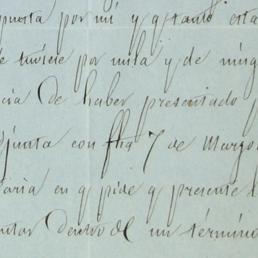 puesta por mi y qto anto esta
e tuviese por mila y de ning
cia de haber presentado
djunta con fha 7 de Marzo
taria en q pide q presente
ntar dentro de un término